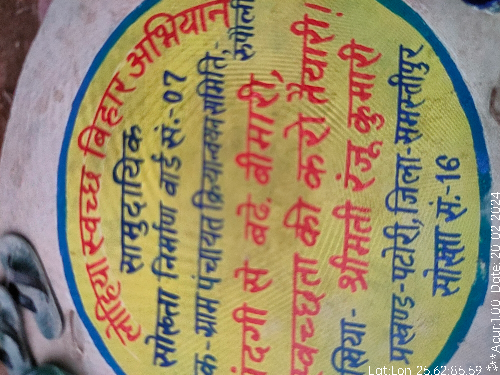 लोहिया स्वच्छ बिहार अभियान
सामुदायिक
सोख्ता निर्माण वार्ड सं.-07
क-ग्राम पंचायत क्रियान्वयन समिति,-रुपौली
गंदगी से बढे. बीमारी,
स्वच्छता की करो तैयारी!
खिया- श्रीमती रंजू कुमारी
प्रखण्ड-पटोरी, जिला-समस्तीपुर
सोख्ता सं.-16
Date: 20.02.2024
Lat:Lon 25.62:85.59